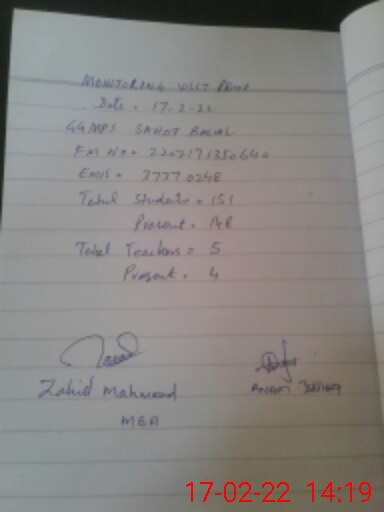 MONITORING VISIT PROOF
Date = 17.2.22
GGMPS SAHOT BALAL
FM No = 2207171350640
EMIS = 37770248
Total Students = 151
Present = 148
Total Teachers = 5
Present = 4
Zahid Mahmood
MEA
17-02-22 14:19